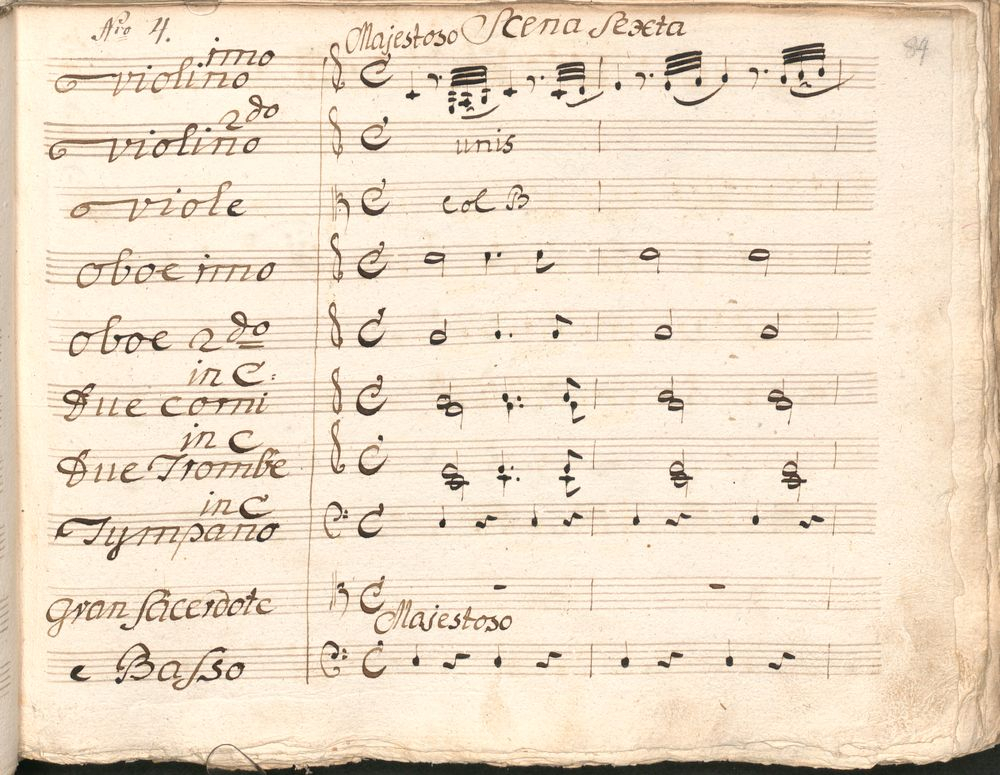 Nro 4. Majestoso Scena Sexta
84
violino imo
violino 2do
unis
viole
col B
oboe imo
oboe 2do
in C:
Due corni
in C
Due Trombe
in C
Tympano
Gran Sacerdote
Majestoso
e Basso